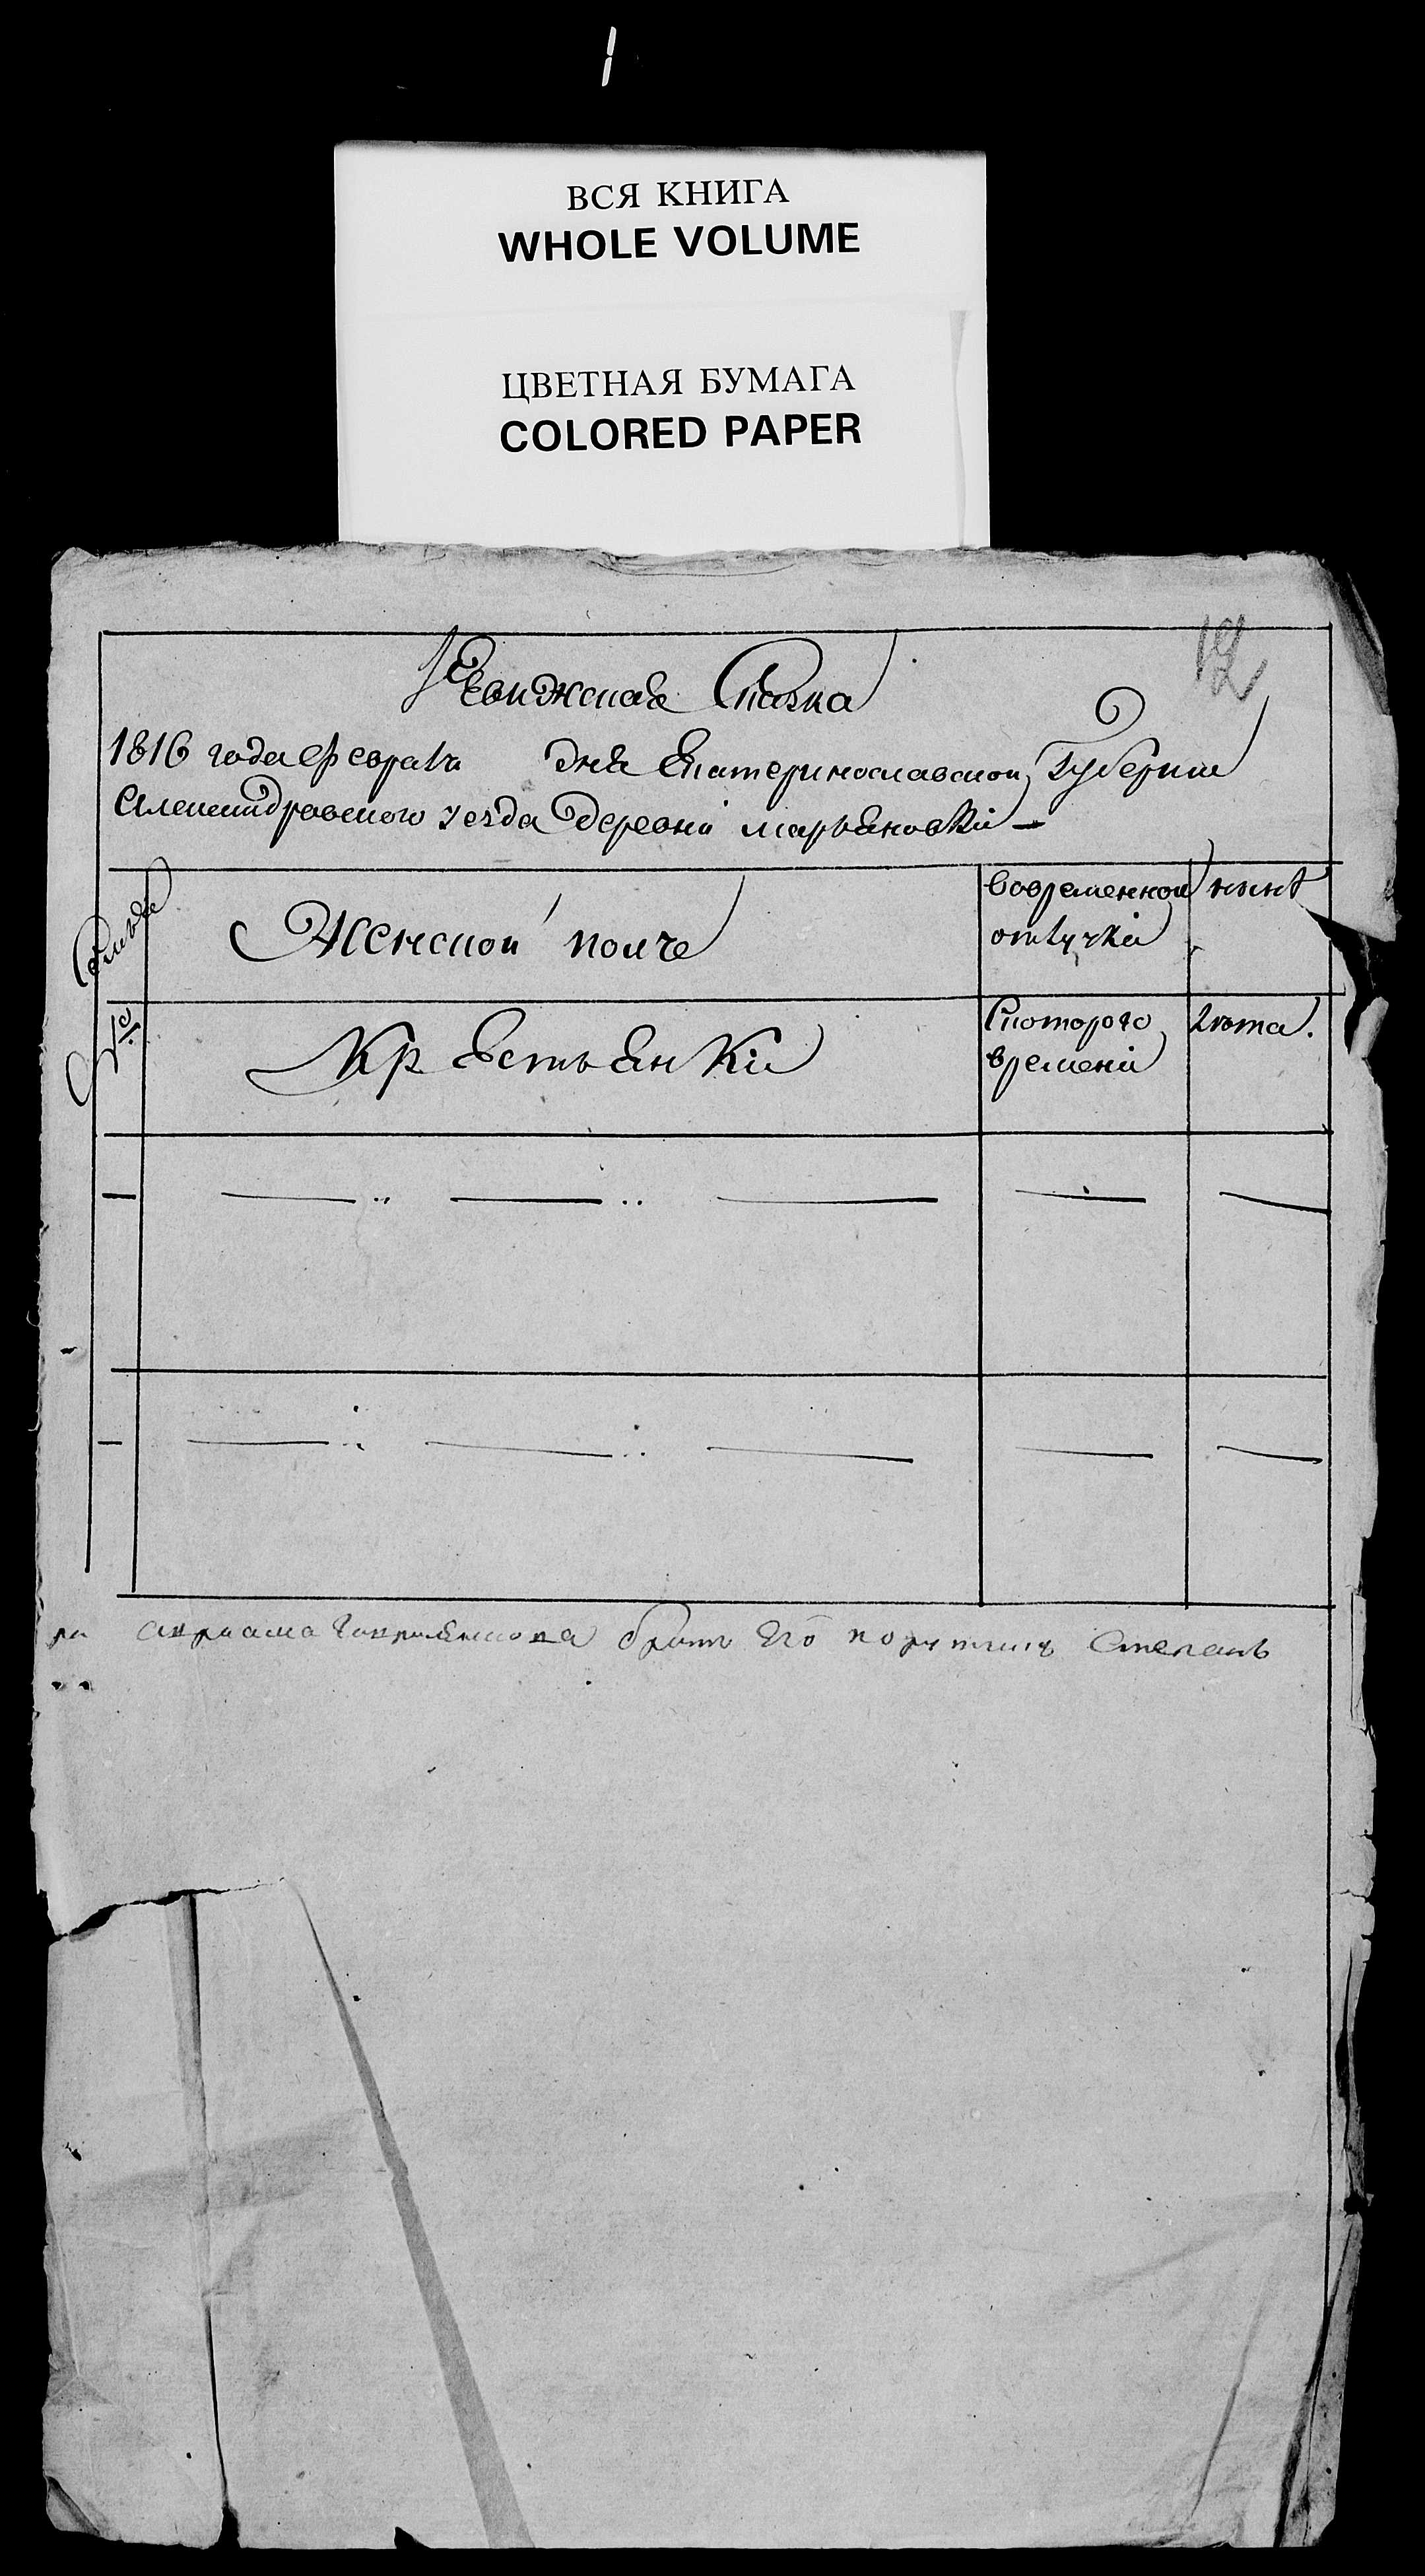 ВСЯ КНИГА
WHOLE VOLUME
ЦВЕТНАЯ БУМАГА
COLORED PAPER
12
Ревижская Сказка
1816 года февраля дня Екатеринославской Губернии
Александровского уезда деревни марьяновки
Семьи
Женской полъ
вовременной
отлучки
нынѣ
№
Крестьянки
Скоторого
времени
лѣта.
брат его порутчикъ Степанъ